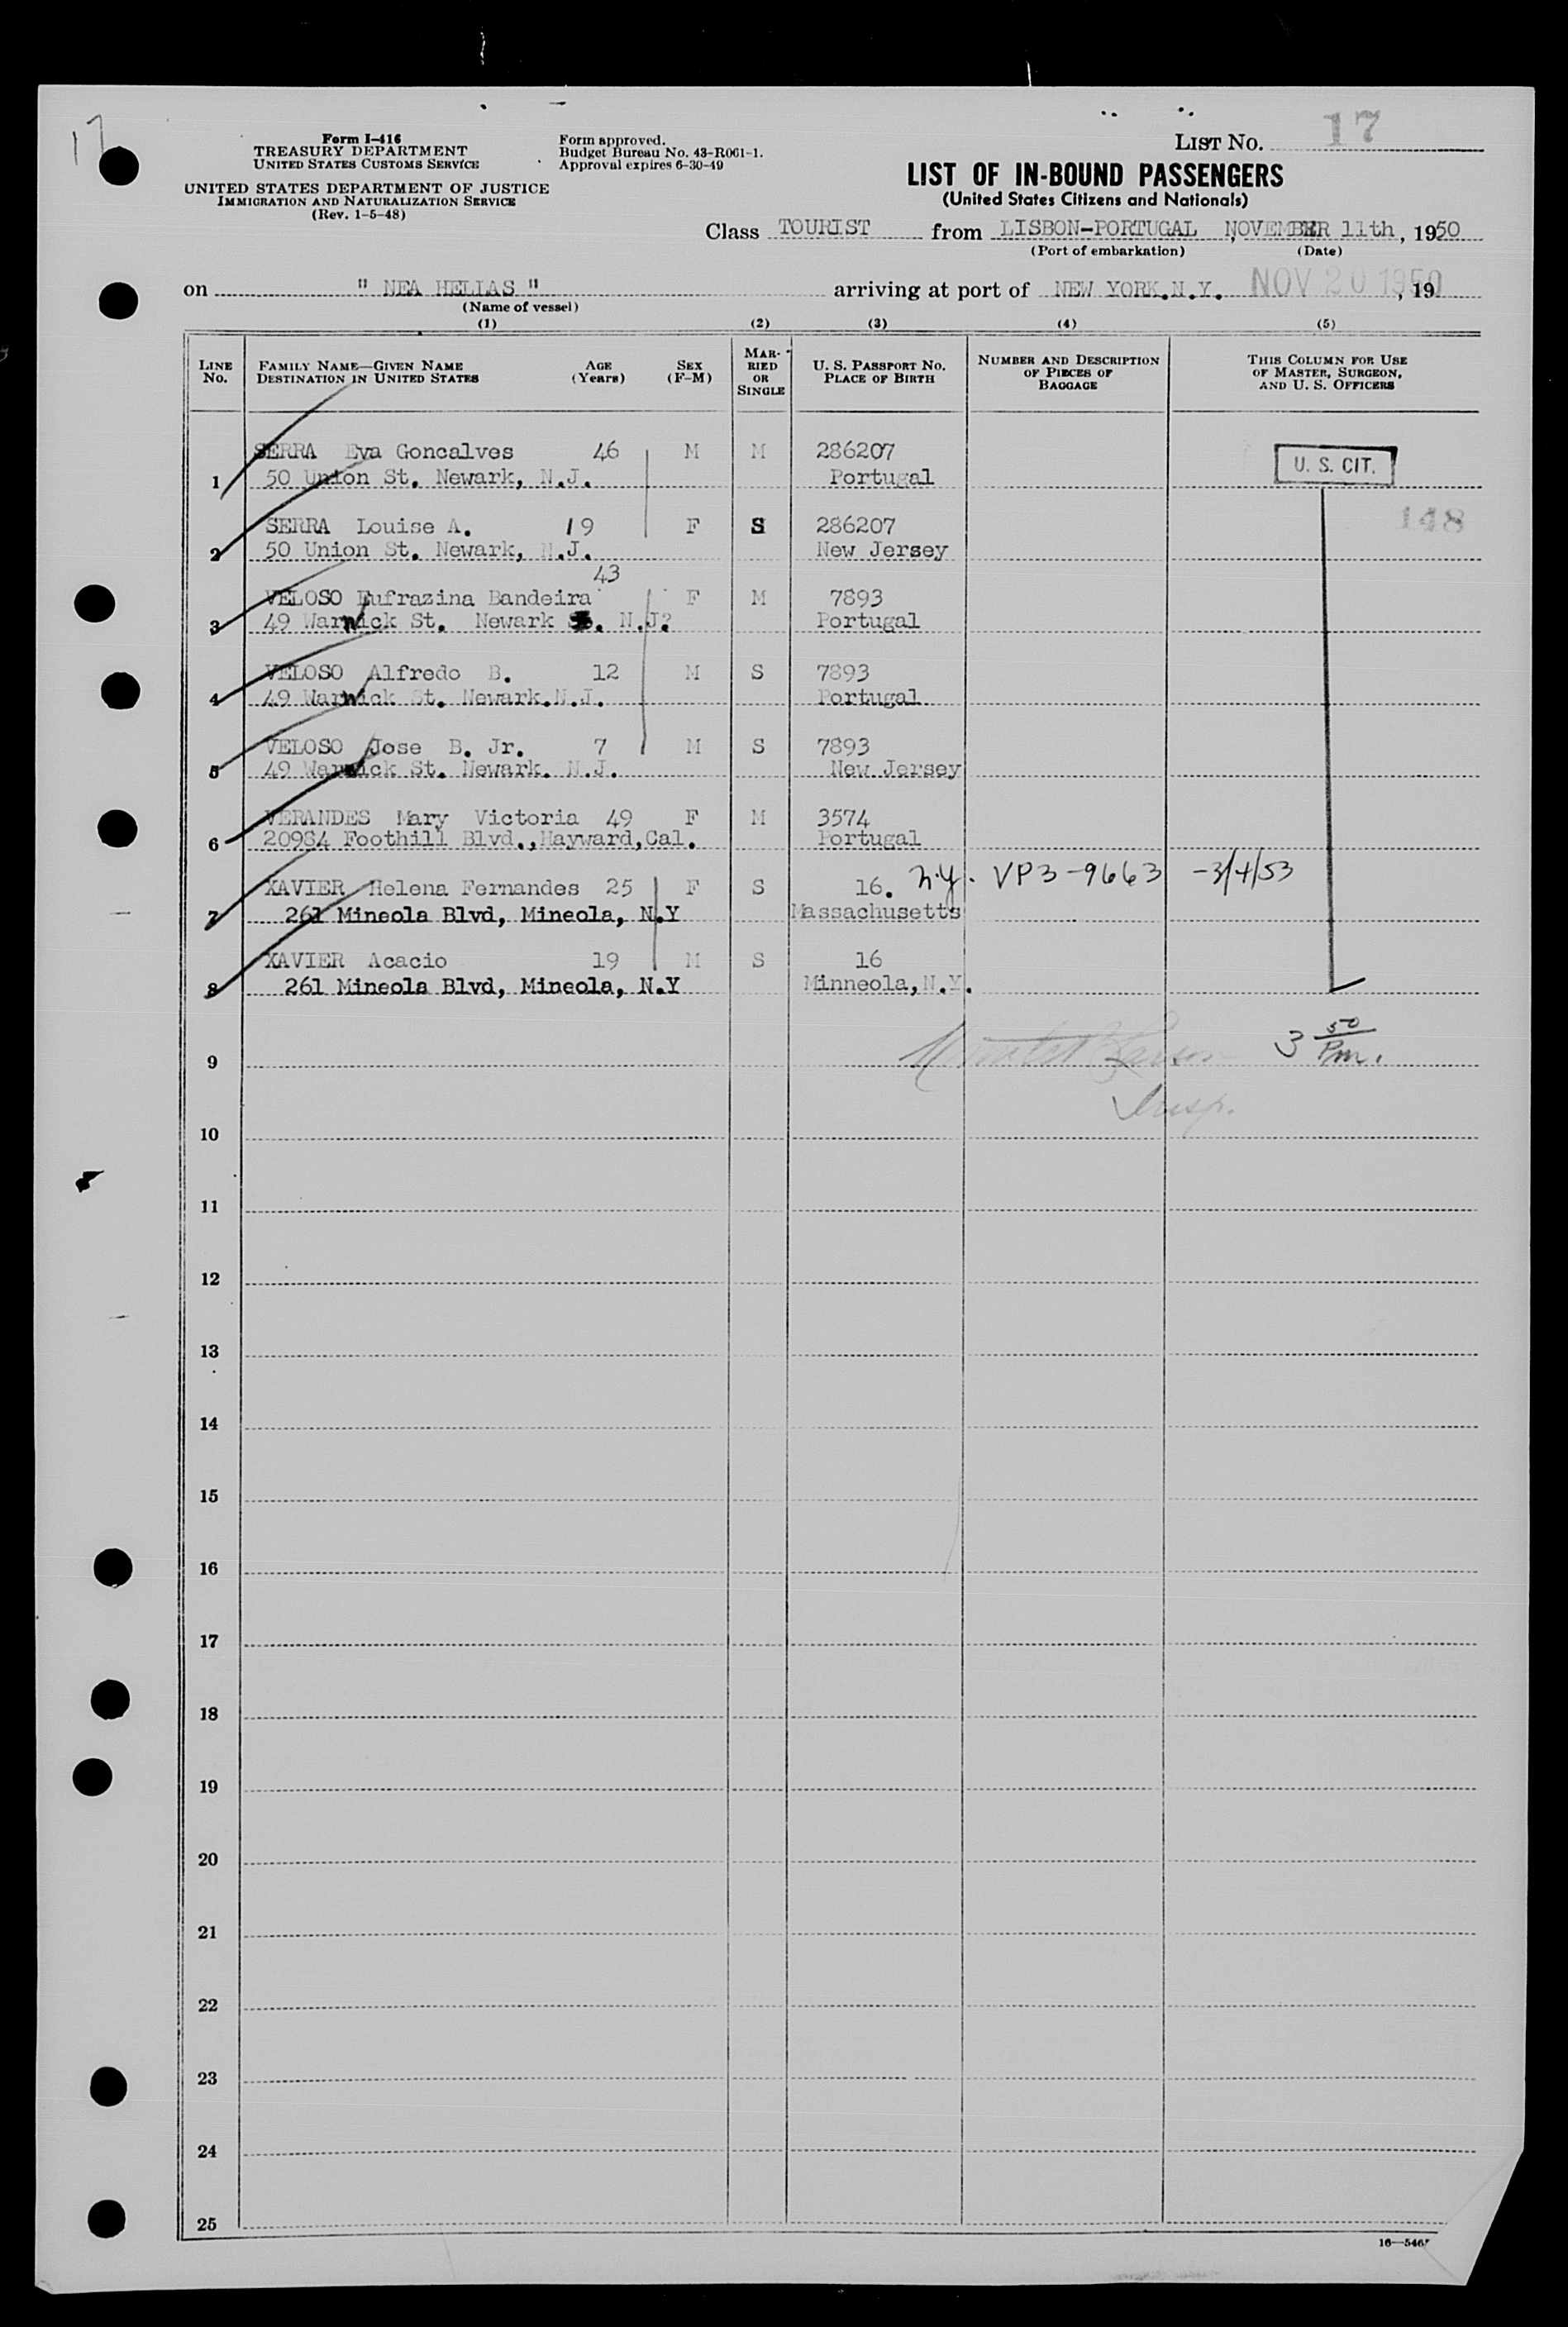 17
Form I-416
TREASURY DEPARTMENT
UNITED STATES CUSTOMS SERVICE
UNITED STATES DEPARTMENT OF JUSTICE
IMMIGRATION AND NATURALIZATION SERVICE
(Rev. 1-5-48)
Form approved.
Budget Bureau No. 43-R061-1.
Approval expires 6-30-49
LIST NO. 17
LIST OF IN-BOUND PASSENGERS
(United States Citizens and Nationals)
Class TOURIST from LISBON-PORTUGAL, NOVEMBER 11th, 1950
(Port of embarkation) (Date)
on " NEA HELLAS " arriving at port of NEW YORK.N.Y. NOV 20 1950, 19
(Name of vessel)
(1) (2) (3) (4) (5)
LINE NO.
FAMILY NAME—GIVEN NAME
DESTINATION IN UNITED STATES
AGE (Years)
SEX (F-M)
MARRIED OR SINGLE
U. S. PASSPORT NO.
PLACE OF BIRTH
NUMBER AND DESCRIPTION OF PIECES OF BAGGAGE
THIS COLUMN FOR USE OF MASTER, SURGEON, AND U. S. OFFICERS
SERRA Eva Goncalves 46 M M 286207
1 50 Union St. Newark, N.J. Portugal U. S. CIT.
SERRA Louise A. 19 F S 286207 148
2 50 Union St. Newark, N.J. New Jersey
43
VELOSO Eufrazina Bandeira F M 7893
3 49 Warwick St. Newark . N.J? Portugal
VELOSO Alfredo B. 12 M S 7893
4 49 Warwick St. Newark.N.J. Portugal
VELOSO Jose B. Jr. 7 M S 7893
5 49 Warwick St. Newark. N.J. New Jersey
VERANDES Mary Victoria 49 F M 3574
6 20984 Foothill Blvd.,Hayward,Cal. Portugal
XAVIER Helena Fernandes 25 F S 16. n.y. VP3-9663 -3/4/53
7 261 Mineola Blvd, Mineola, N.Y Massachusetts
XAVIER Acacio 19 M S 16
8 261 Mineola Blvd, Mineola, N.Y Minneola, N.Y.
9 3 50 Pm.
Insp.
10
11
12
13
14
15
16
17
18
19
20
21
22
23
24
25